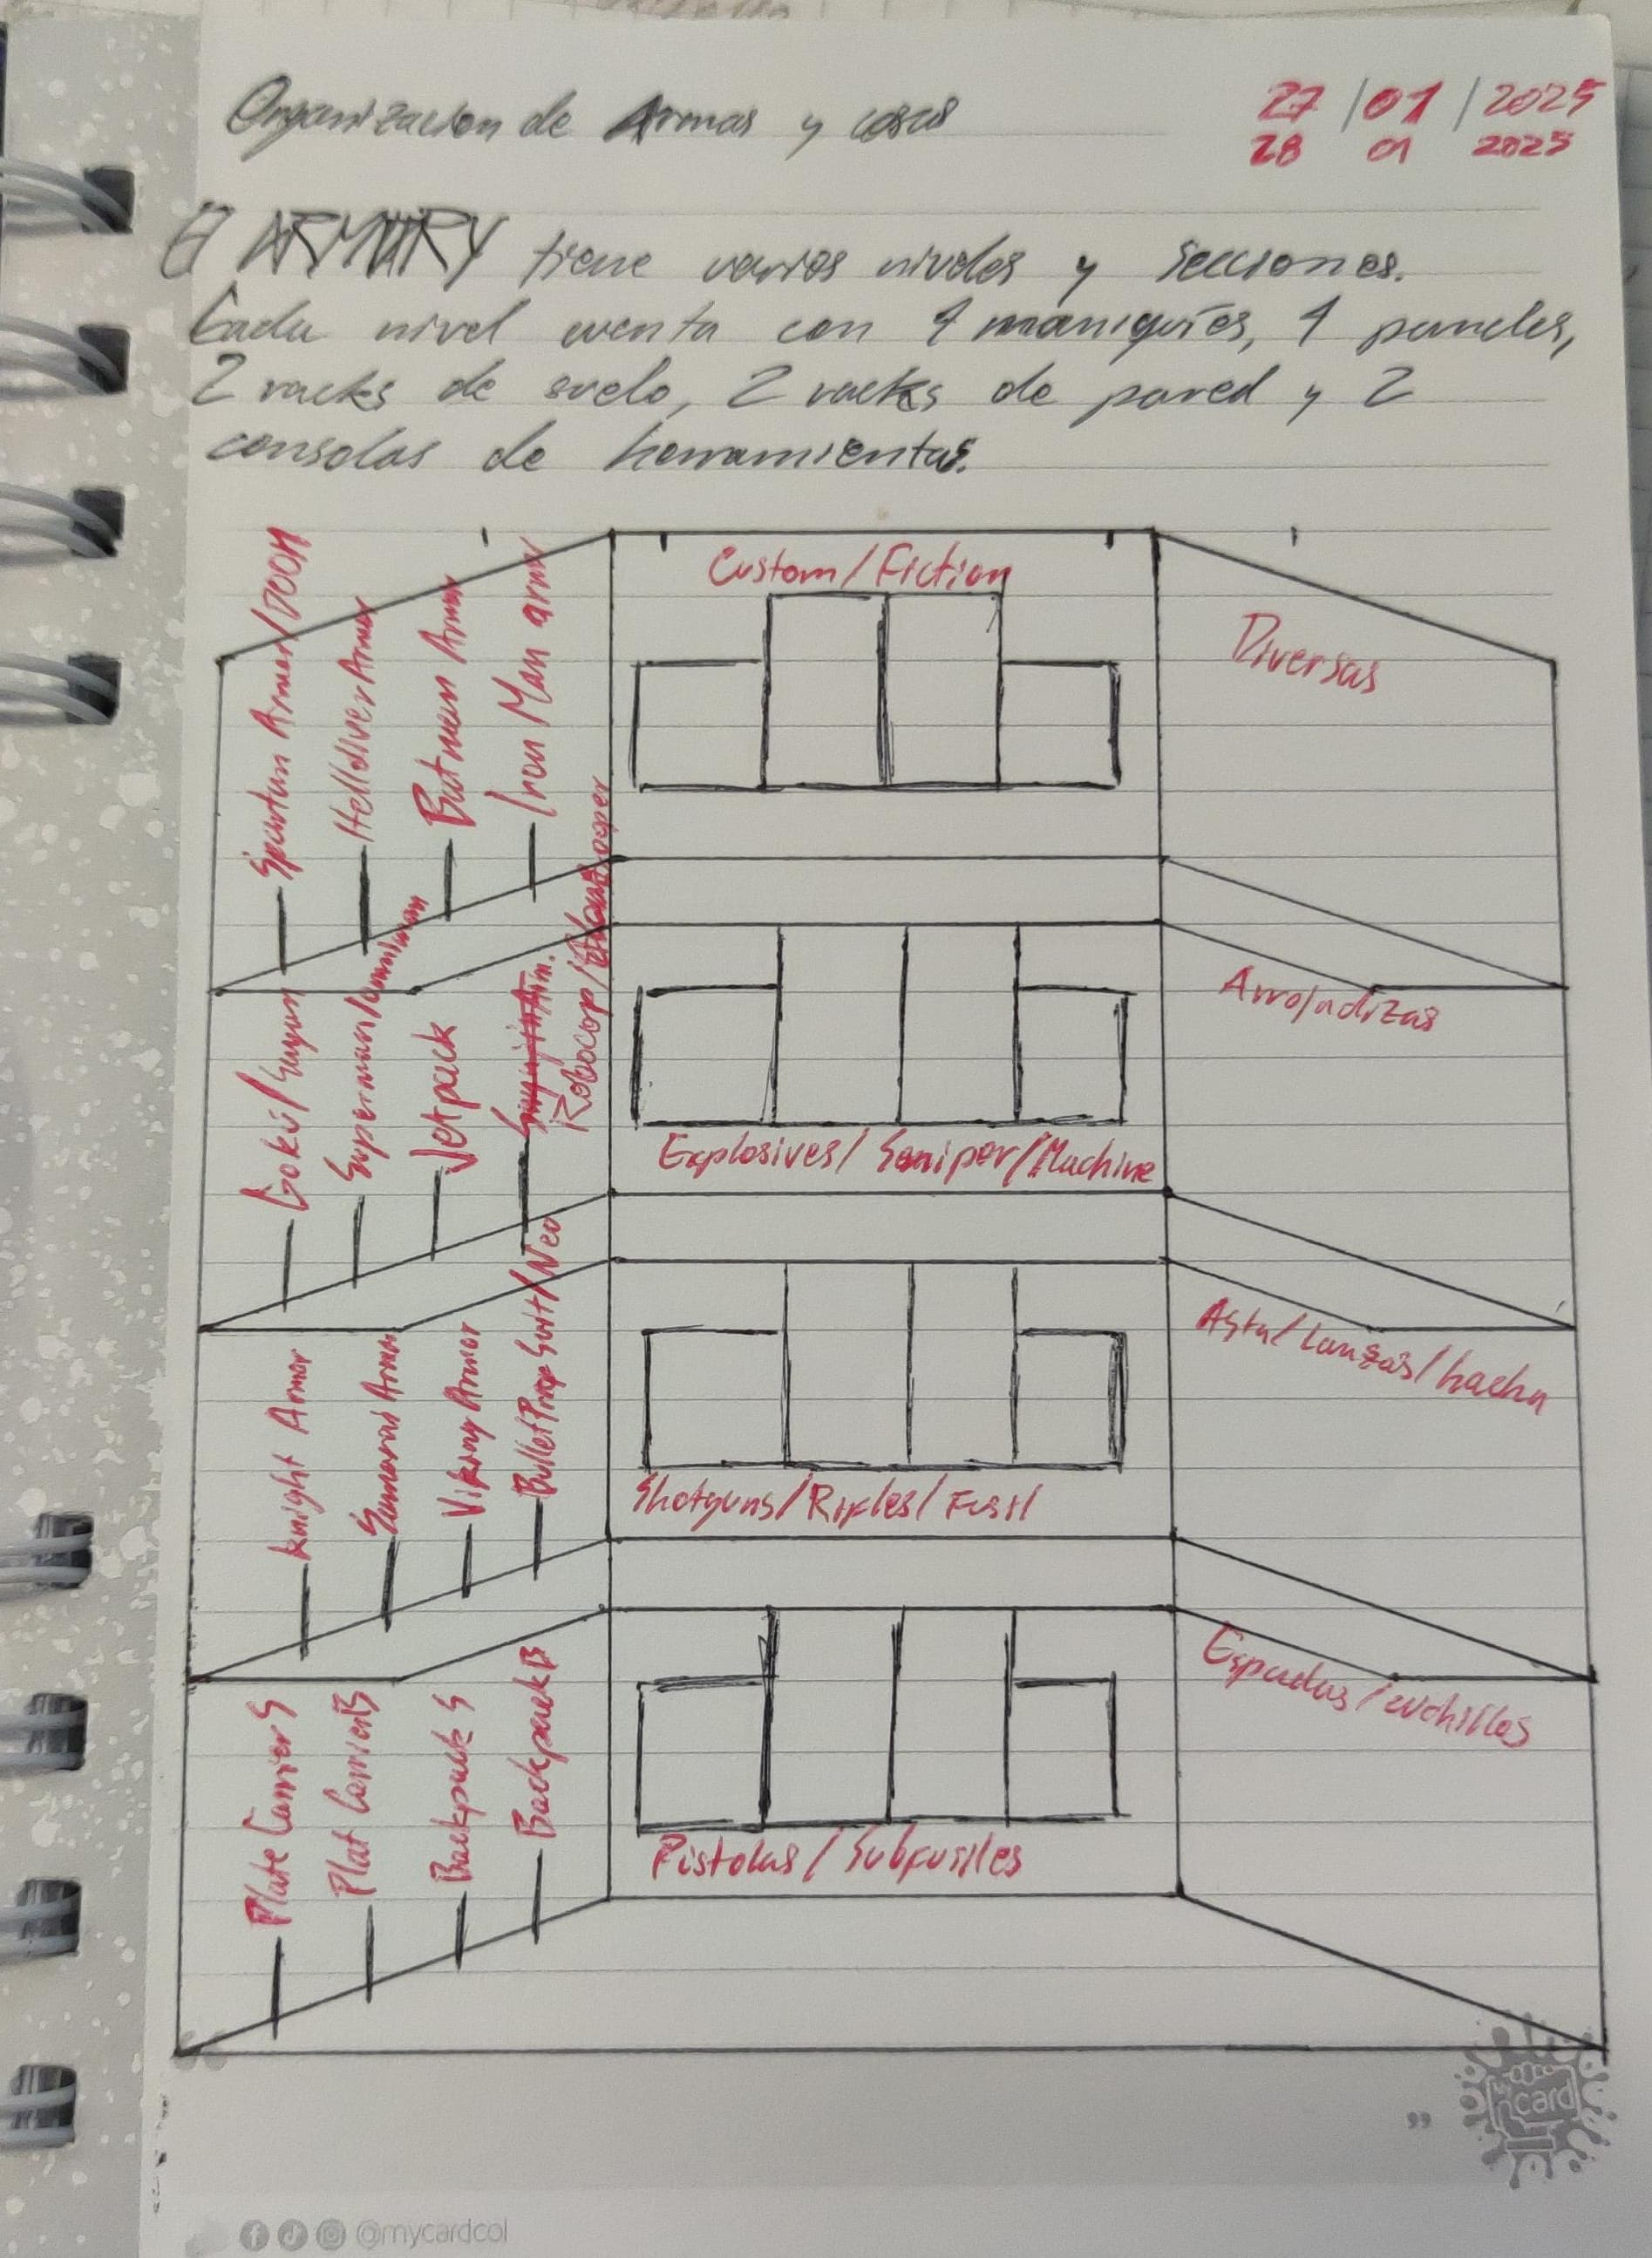 Organizacion de Armas y cosas
27 / 01 / 2025
28 01 2025
El ARMORY tiene varios niveles y secciones.
Cada nivel cuenta con 4 maniquíes, 4 paneles,
2 racks de suelo, 2 racks de pared y 2
consolas de herramientas.
Spartan Armor/DOOM
Helldiver Armor
Batman Armor
Iron Man armor
Custom/Fiction
Diversas
Goku/Sayan
Superman/
Jetpack
Robocop/
Explosives/ Sniper/Machine
Arrojadizas
Knight Armor
Samurai Armor
Viking Armor
Bullet Prop Suit/Neo
Shotguns/Rifles/Fusil
Asta/Lanzas/hacha
Plate Carrier S
Plat Carrier B
Backpack S
Backpack B
Pistolas / Subfusiles
Espadas/cuchillos
99
My card
@mycardcol